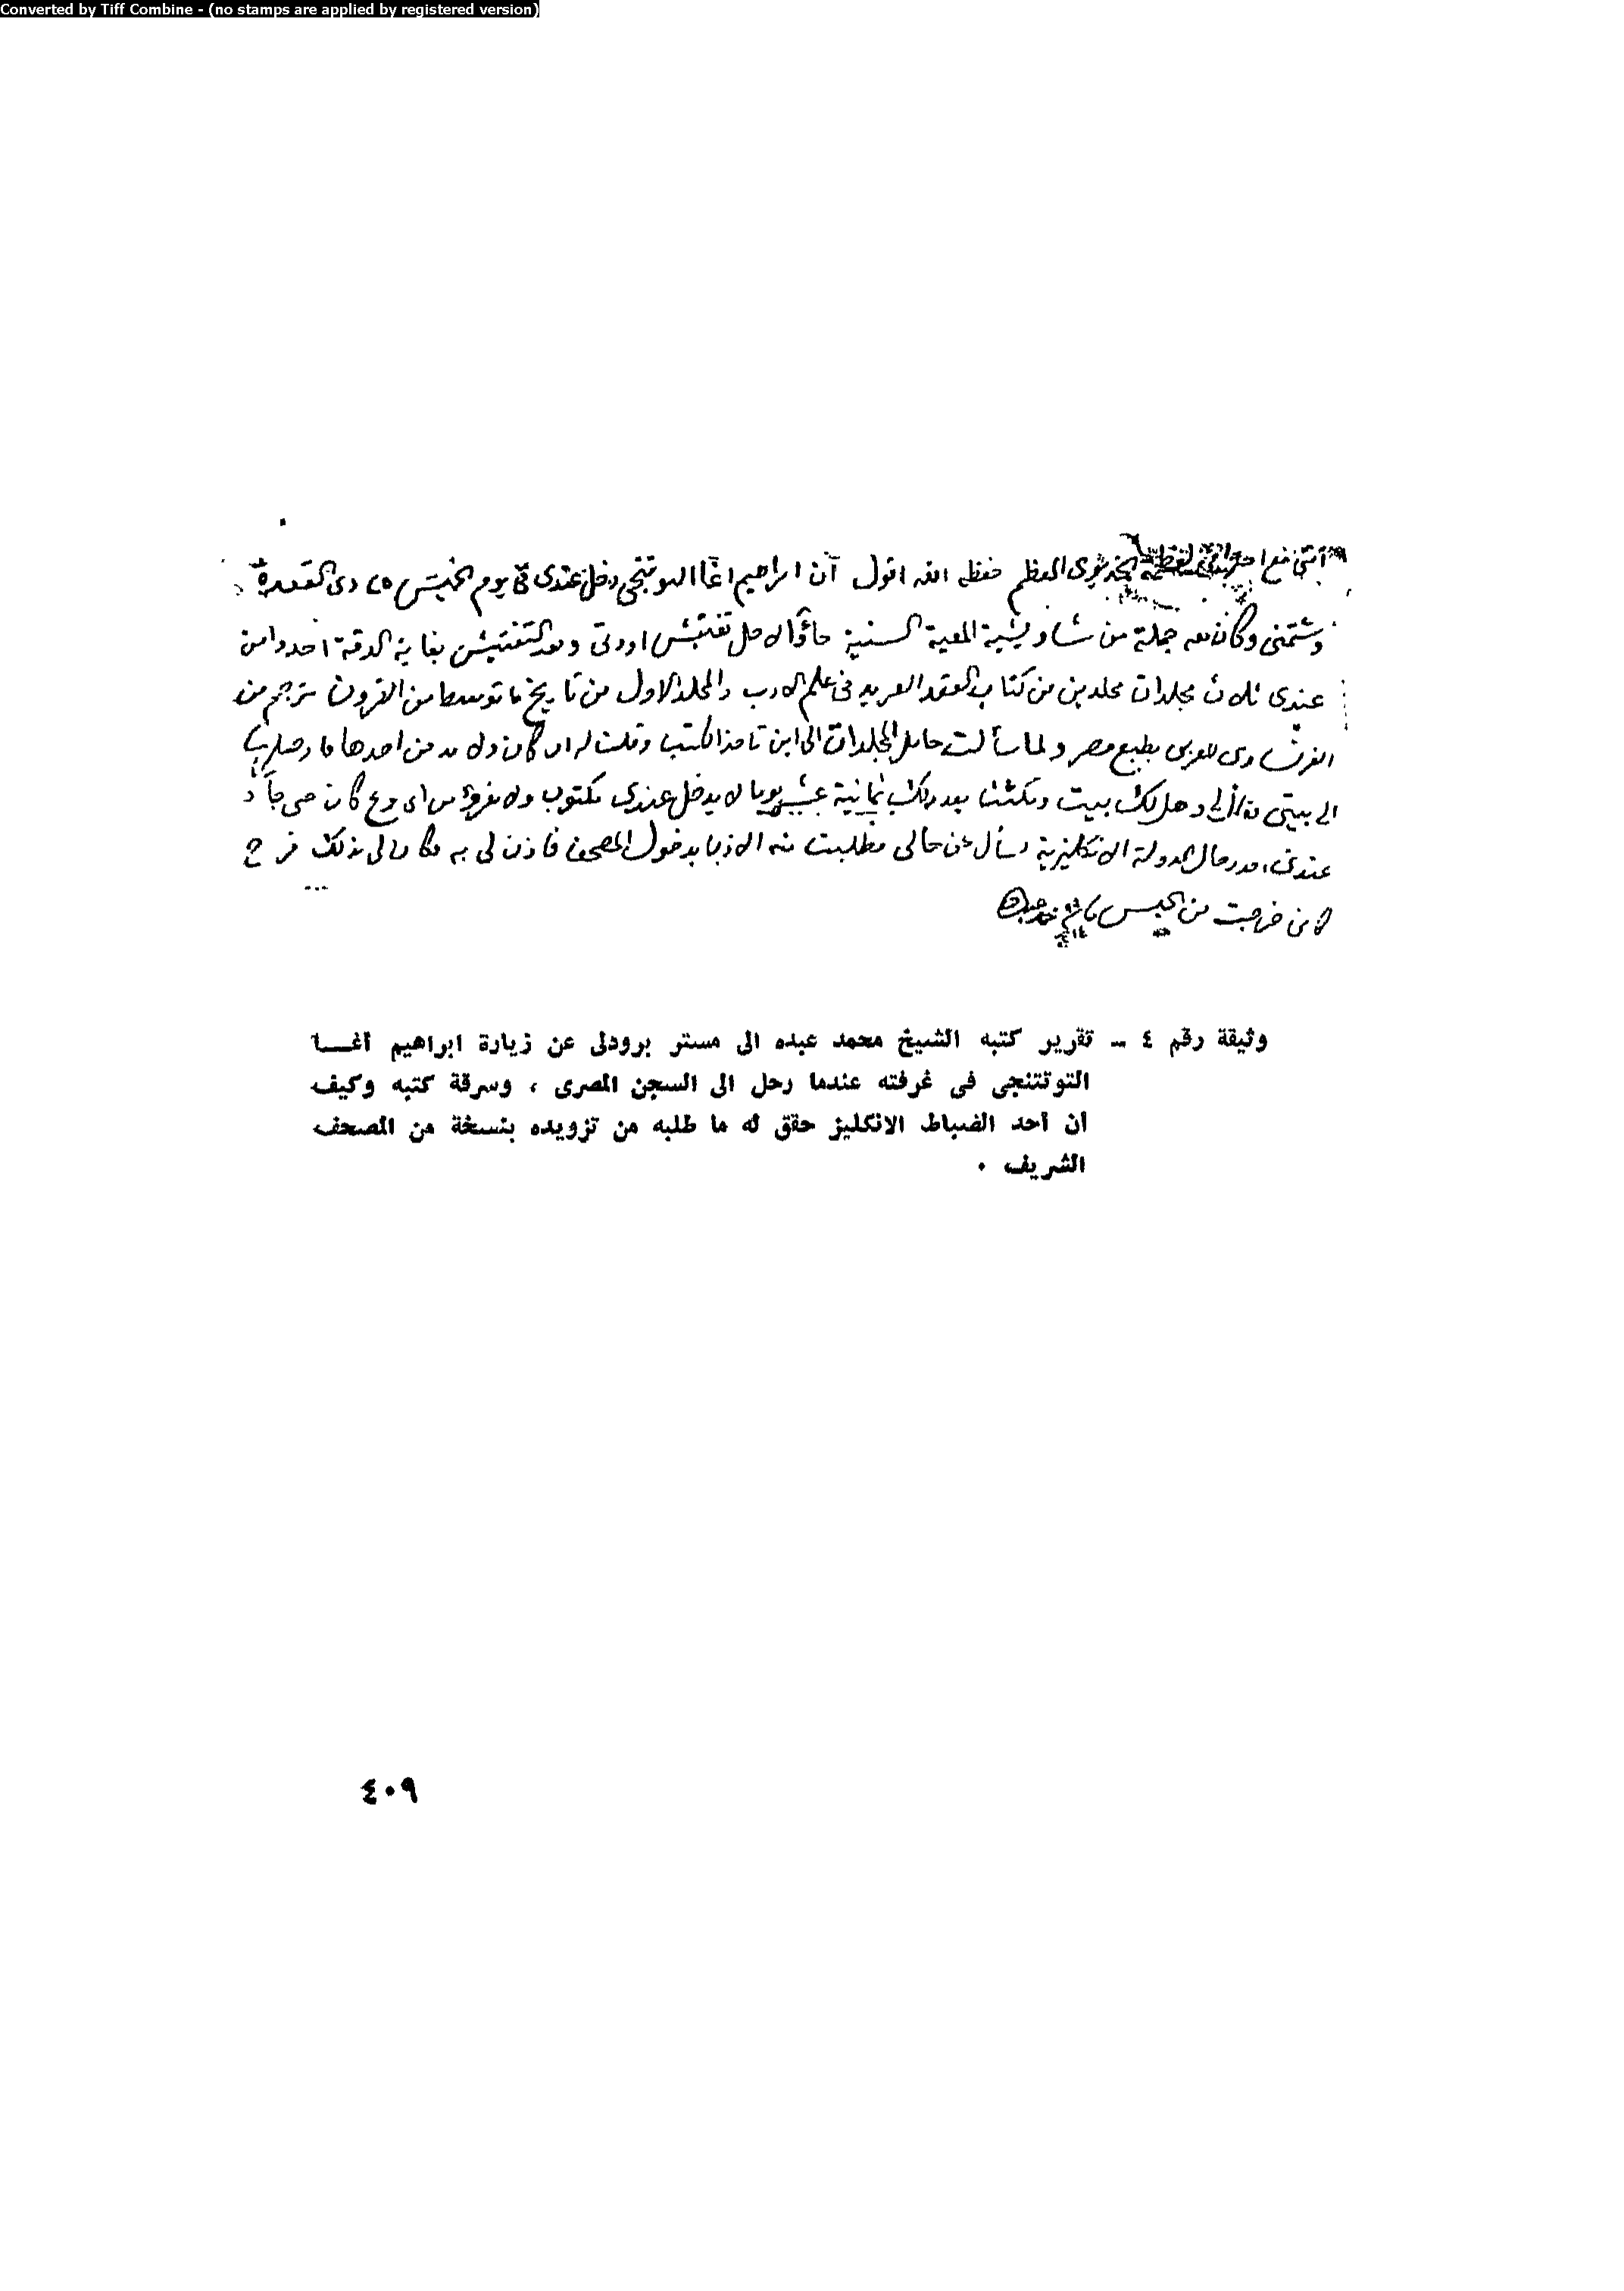 Converted by Tiff Combine - (no stamps are applied by registered version)
اننى مع المعظم حفظه الله اقول ان ابراهيم اغا التوتنجى دخل عندى فى يوم الخميس ٢٥ ذى القعدة
وشتمنى وكان معه جملة من شاويشية المعية السنية جاؤا لاجل تفتيش اودتى وبعد التفتيش بغاية الدقة اخذوا من
عندى ثلاث مجلدات مجلدين من كتاب العقد الفريد فى علم الادب والمجلد الاول من تاريخ ما توسط من القرون مترجم من
الفرنساوى للعربى بطبع مصر ولما سألت حامل المجلدات الى اين تأخذ الكتب وقلت له ان كان ولا بد من اخذها فاوصلها
الى بيتى فقال لى وهل لك بيت ومكثت بعد ذلك ثمانية عشر يوما لا يدخل عندى مكتوب ولا مقروء من اى نوع كان حتى جاء
عندى احد رجال الدولة الانكليزية وسأل عن حالى فطلبت منه الاذن بدخول المصحف فاذن لى به فكان لى بذلك فرح
كأنى خرجت من الحبس محمد عبده
وثيقة رقم ٤ - تقرير كتبه الشيخ محمد عبده الى مستر برودلى عن زيارة ابراهيم آغـــا
التوتتنجى فى غرفته عندما رحل الى السجن المصرى ، وسرقة كتبه وكيف
ان أحد الضباط الانكليز حقق له ما طلبه من تزويده بنسخة من المصحف
الشريف ٠
٤٠٩